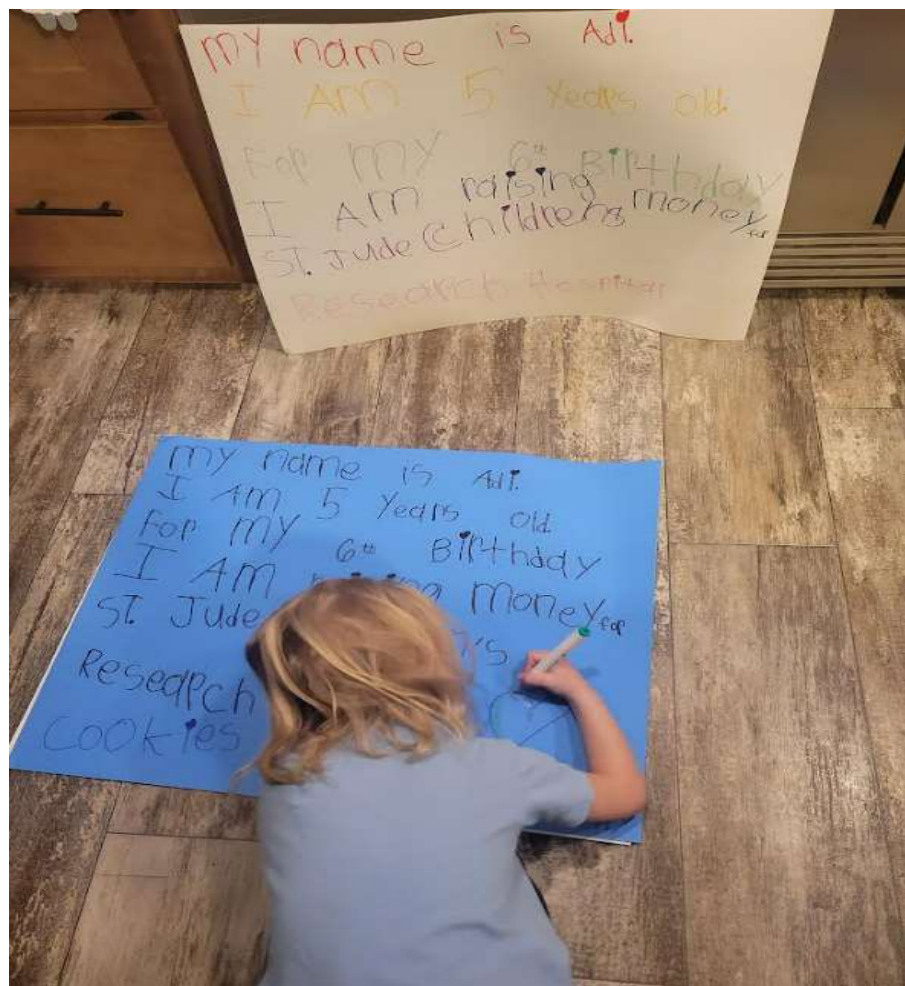 my name is Adi.
I Am 5 Years old.
For my 6th Birthday
I Am raising money for
ST. Jude Childrens
Research Hospital
my name is Adi.
I Am 5 Years Old.
For my 6th Birthday
I Am money for
ST. Jude
Research
Cookies